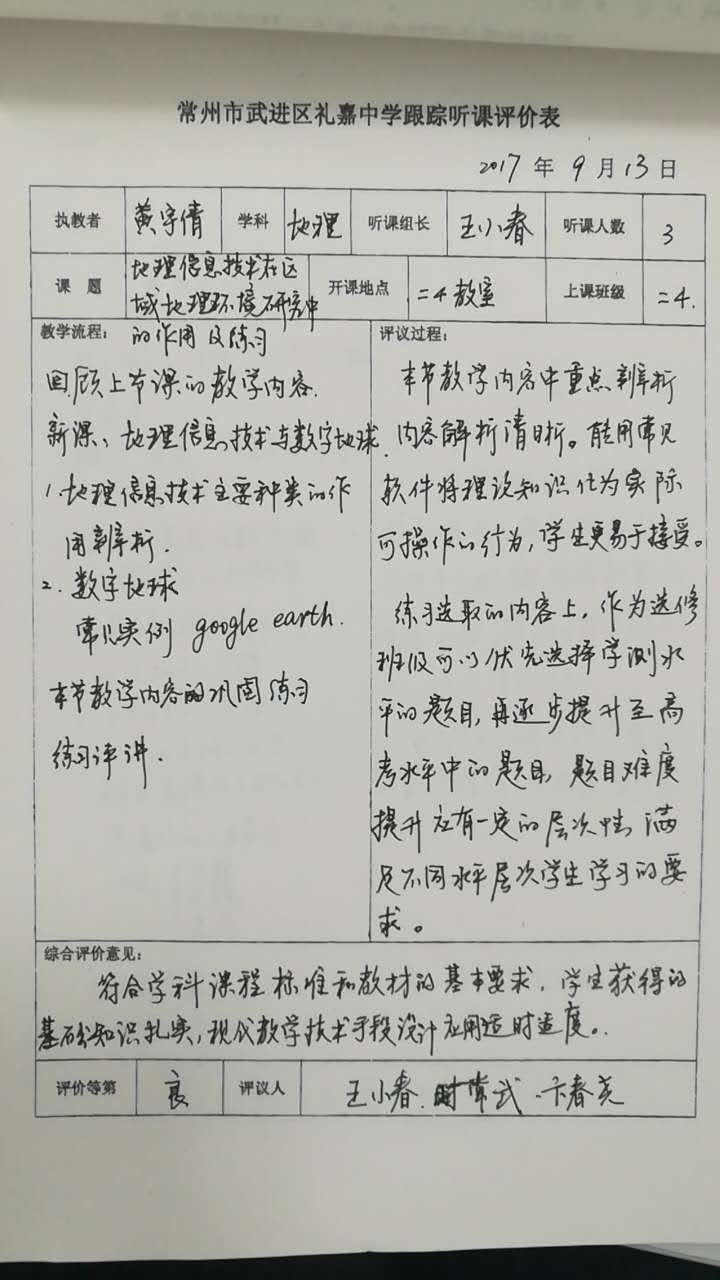 常州市武进区礼嘉中学跟踪听课评价表
2017 年 9 月 13 日
执教者 黄宇倩 学科 地理 听课组长 王小春 听课人数 3
课 题 地理信息技术在区域地理环境研究中的作用及练习 开课地点 二4教室 上课班级 二4.
教学流程:
回顾上节课的教学内容.
新课、地理信息技术与数字地球.
1.地理信息技术主要种类的作
用辨析.
2.数字地球
常见实例 google earth.
本节教学内容的巩固练习
练习评讲.
评议过程:
本节教学内容中重点辨析
内容解析清晰。能用常见
软件将理论知识化为实际
可操作的行为,学生更易于接受。
练习选取的内容上,作为选修
班级可以优先选择学测水
平的题目,再逐步提升至高
考水平中的题目,题目难度
提升应有一定的层次性,满
足不同水平层次学生学习的要
求。
综合评价意见:
符合学科课程标准和教材的基本要求,学生获得的
基础知识扎实,现代教学技术手段设计应用适时适度。
评价等第 良 评议人 王小春.时常武.卞春尧